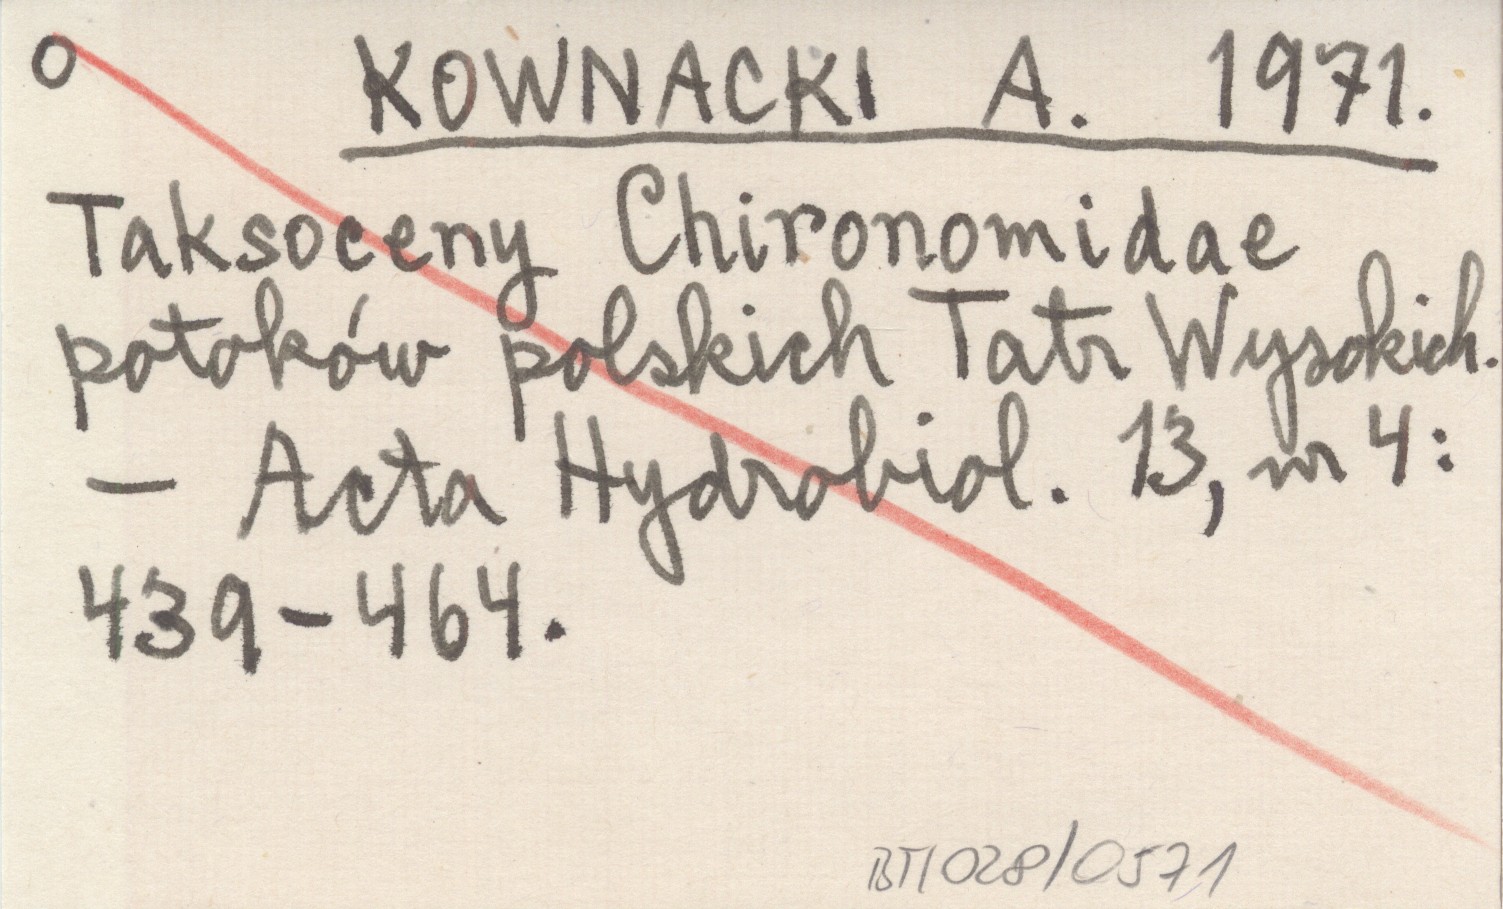 O KOWNACKI A. 1971.
Taksoceny Chironomidae
potoków polskich Tatr Wysokich.
– Acta Hydrobiol. 13, nr 4:
439–464.
BT/028/0571